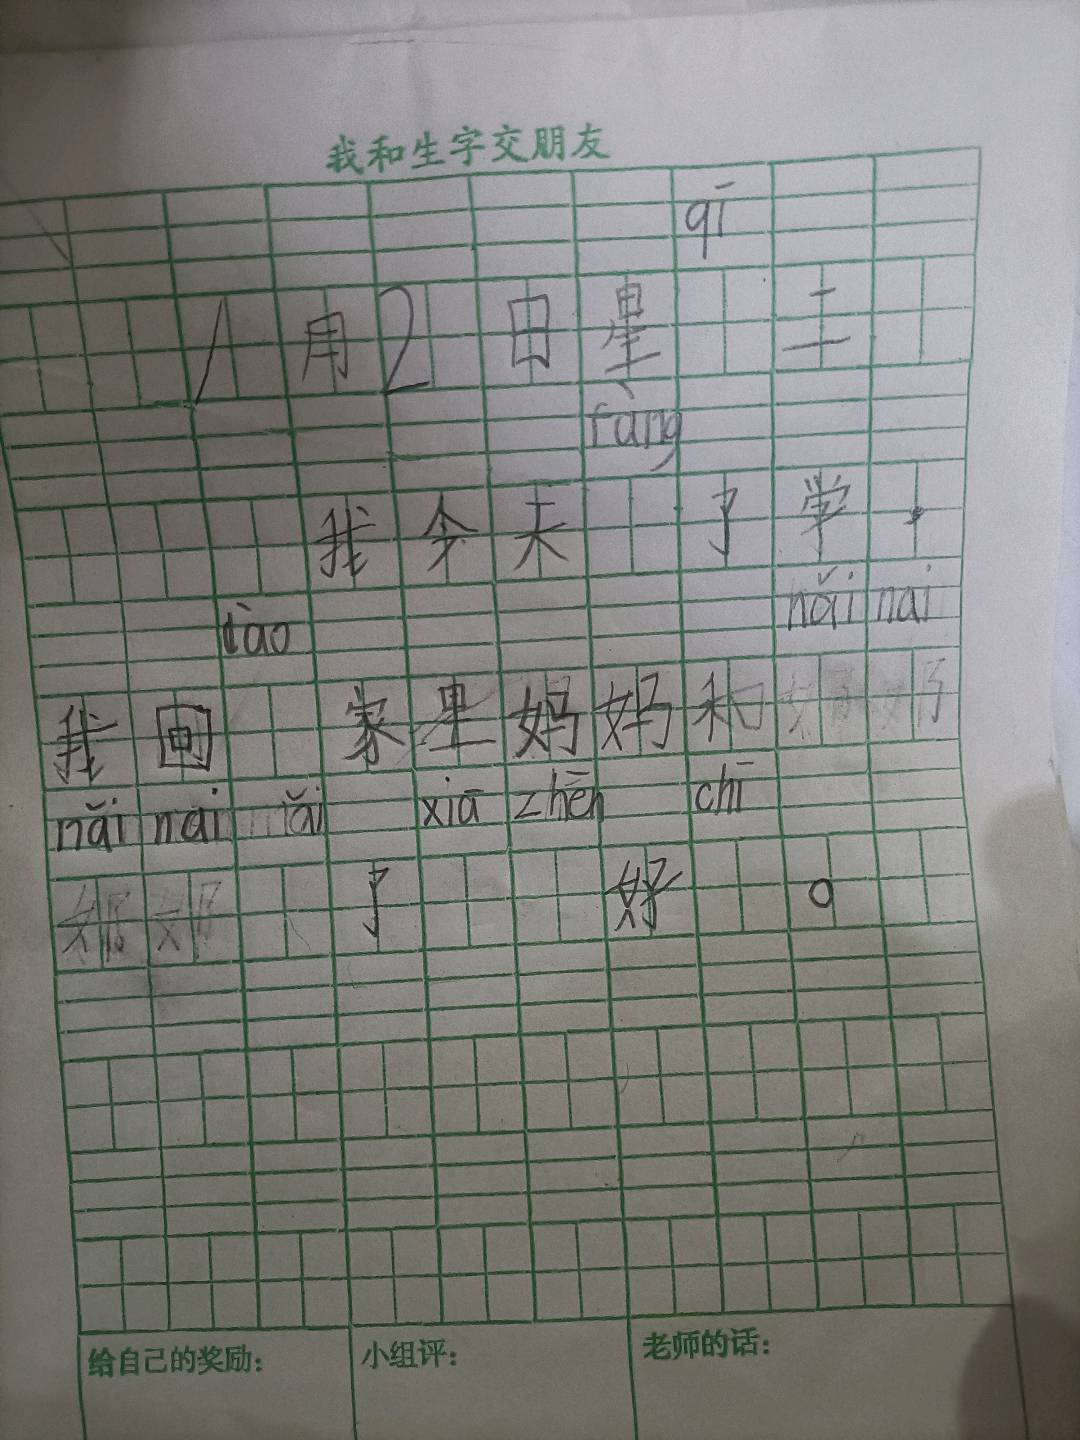 我和生字交朋友
qī
1月2日星 二
fàng
我今天 了学,
dào nǎi nai
我回 家里妈妈和
nǎi nai nǎi xiā zhēn chī
了 好 。
给自己的奖励: 小组评: 老师的话: